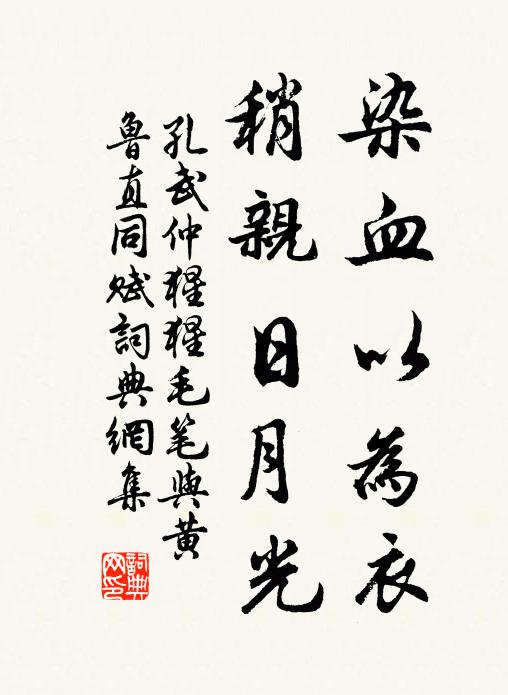 染血以為衣
稍親日月光
孔武仲猩猩毛笔與黄
魯直同赋詞典網集
詞典
网印